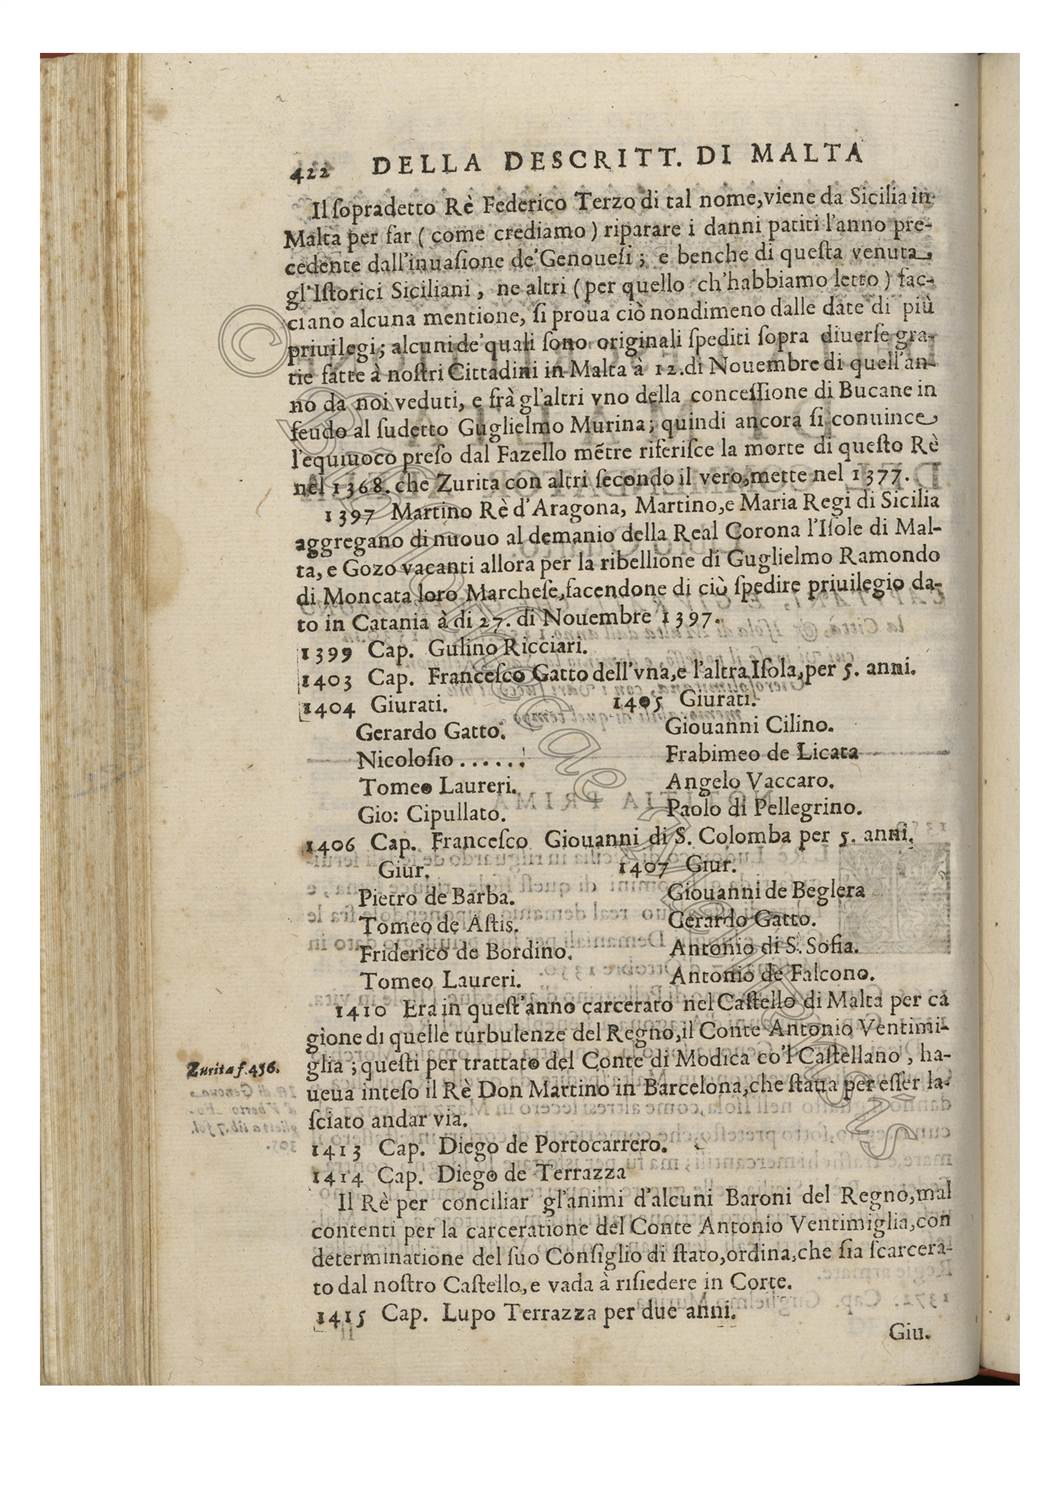 422 DELLA DESCRITT. DI MALTA
Il ſopradetto Rè Federico Terzo di tal nome,viene da Sicilia in
Malta per far ( come crediamo ) riparare i danni patiti l'anno pre-
cedente dall'inuaſione de'Genoueſi ; e benche di queſta venuta,
gl'Iſtorici Siciliani , ne altri ( per quello ch'habbiamo letto ) fac-
ciano alcuna mentione, ſi proua ciò nondimeno dalle date di più
priuilegi; alcuni de'quali ſono originali ſpediti ſopra diuerſe gra-
tie fatte à noſtri Cittadini in Malta à 12.di Nouembre di quell'an-
no da noi veduti, e frà gl'altri vno della conceſſione di Bucane in
feudo al ſudetto Guglielmo Murina ; quindi ancora ſi conuince
l'equiuoco preſo dal Fazello mẽtre riferiſce la morte di queſto Rè
nel 1368. che Zurita con altri ſecondo il vero,mette nel 1377.
1397 Martino Rè d'Aragona, Martino,e Maria Regi di Sicilia
aggregano di nuouo al demanio della Real Corona l'Iſole di Mal-
ta, e Gozo vacanti allora per la ribellione di Guglielmo Ramondo
di Moncata loro Marcheſe,facendone di ciò ſpedire priuilegio da-
to in Catania à di 27. di Nouembre 1397.
1399 Cap. Gulino Ricciari.
1403 Cap. Franceſco Gatto dell'vna,e l'altra Iſola,per 5. anni.
1404 Giurati. 1405 Giurati.
Gerardo Gatto. Giouanni Cilino.
Nicoloſio . . . . . . Frabimeo de Licata
Tomeo Laureri. Angelo Vaccaro.
Gio: Cipullato. Paolo di Pellegrino.
1406 Cap. Franceſco Giouanni di S. Colomba per 5. anni.
Giur. 1407 Giur.
Pietro de Barba. Giouanni de Beglera
Tomeo de Aſtis. Gerardo Gatto.
Friderico de Bordino. Antonio di S. Sofia.
Tomeo Laureri. Antonio de Falcono.
1410 Era in queſt'anno carcerato nel Caſtello di Malta per ca
gione di quelle turbulenze del Regno,il Conte Antonio Ventimi-
Zurita f.456.
glia ; queſti per trattato del Conte di Modica co'l Caſtellano , ha-
ueua inteſo il Rè Don Martino in Barcelona,che ſtaua per eſſer la-
ſciato andar via.
1413 Cap. Diego de Portocarrero.
1414 Cap. Diego de Terrazza
Il Rè per conciliar gl'animi d'alcuni Baroni del Regno,mal
contenti per la carceratione del Conte Antonio Ventimiglia,con
determinatione del ſuo Conſiglio di ſtato,ordina,che ſia ſcarcera-
to dal noſtro Caſtello,e vada à riſiedere in Corte.
1415 Cap. Lupo Terrazza per due anni.
Giu.